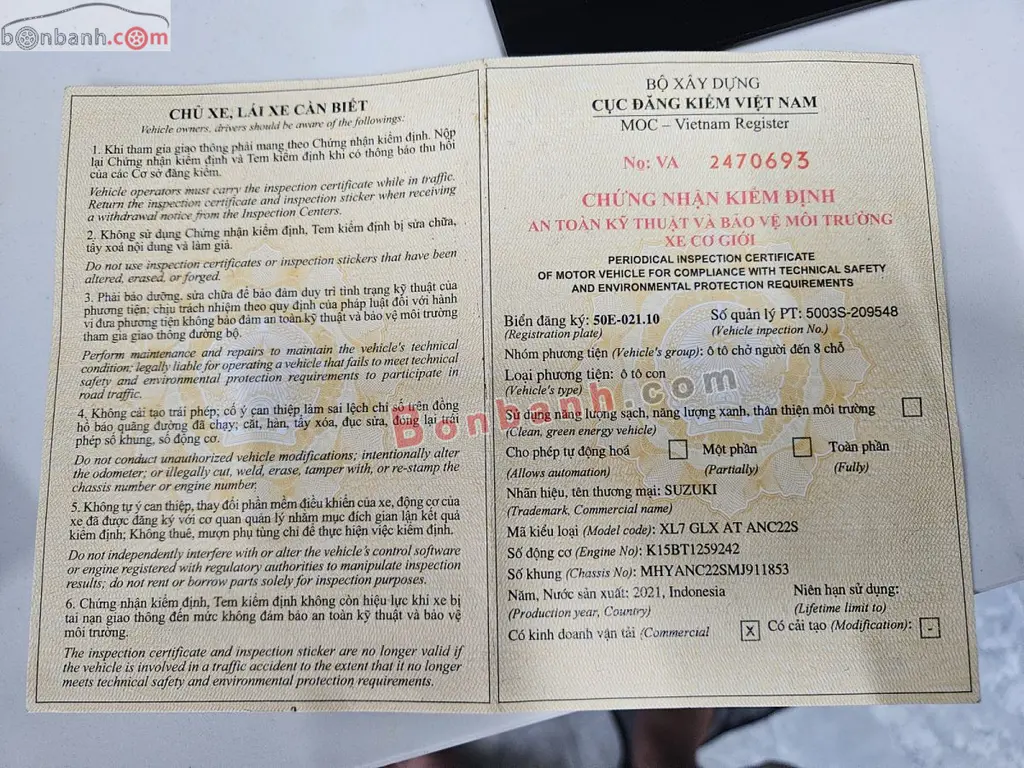 bonbanh.com
CHỦ XE, LÁI XE CẦN BIẾT
Vehicle owners, drivers should be aware of the followings:
1. Khi tham gia giao thông phải mang theo Chứng nhận kiểm định. Nộp
lại Chứng nhận kiểm định và Tem kiểm định khi có thông báo thu hồi
của các Cơ sở đăng kiểm.
Vehicle operators must carry the inspection certificate while in traffic.
Return the inspection certificate and inspection sticker when receiving
a withdrawal notice from the Inspection Centers.
2. Không sử dụng Chứng nhận kiểm định, Tem kiểm định bị sửa chữa,
tẩy xoá nội dung và làm giả.
Do not use inspection certificates or inspection stickers that have been
altered, erased, or forged.
3. Phải bảo dưỡng, sửa chữa để bảo đảm duy trì tình trạng kỹ thuật của
phương tiện; chịu trách nhiệm theo quy định của pháp luật đối với hành
vi đưa phương tiện không bảo đảm an toàn kỹ thuật và bảo vệ môi trường
tham gia giao thông đường bộ.
Perform maintenance and repairs to maintain the vehicle's technical
condition; legally liable for operating a vehicle that fails to meet technical
safety and environmental protection requirements to participate in
road traffic.
4. Không cải tạo trái phép; cố ý can thiệp làm sai lệch chỉ số trên đồng
hồ báo quãng đường đã chạy; cắt, hàn, tẩy xóa, đục sửa, đóng lại trái
phép số khung, số động cơ.
Do not conduct unauthorized vehicle modifications; intentionally alter
the odometer; or illegally cut, weld, erase, tamper with, or re-stamp the
chassis number or engine number.
5. Không tự ý can thiệp, thay đổi phần mềm điều khiển của xe, động cơ của
xe đã được đăng ký với cơ quan quản lý nhằm mục đích gian lận kết quả
kiểm định; Không thuê, mượn phụ tùng chỉ để thực hiện việc kiểm định.
Do not independently interfere with or alter the vehicle's control software
or engine registered with regulatory authorities to manipulate inspection
results; do not rent or borrow parts solely for inspection purposes.
6. Chứng nhận kiểm định, Tem kiểm định không còn hiệu lực khi xe bị
tai nạn giao thông đến mức không đảm bảo an toàn kỹ thuật và bảo vệ
môi trường.
The inspection certificate and inspection sticker are no longer valid if
the vehicle is involved in a traffic accident to the extent that it no longer
meets technical safety and environmental protection requirements.
BỘ XÂY DỰNG
CỤC ĐĂNG KIỂM VIỆT NAM
MOC – Vietnam Register
No: VA 2470693
CHỨNG NHẬN KIỂM ĐỊNH
AN TOÀN KỸ THUẬT VÀ BẢO VỆ MÔI TRƯỜNG
XE CƠ GIỚI
PERIODICAL INSPECTION CERTIFICATE
OF MOTOR VEHICLE FOR COMPLIANCE WITH TECHNICAL SAFETY
AND ENVIRONMENTAL PROTECTION REQUIREMENTS
Biển đăng ký: 50E-021.10 Số quản lý PT: 5003S-209548
(Registration plate) (Vehicle inspection No.)
Nhóm phương tiện (Vehicle's group): ô tô chở người đến 8 chỗ
Loại phương tiện: ô tô con
(Vehicle's type)
Sử dụng năng lượng sạch, năng lượng xanh, thân thiện môi trường
(Clean, green energy vehicle)
Cho phép tự động hoá Một phần Toàn phần
(Allows automation) (Partially) (Fully)
Nhãn hiệu, tên thương mại: SUZUKI
(Trademark, Commercial name)
Mã kiểu loại (Model code): XL7 GLX AT ANC22S
Số động cơ (Engine No): K15BT1259242
Số khung (Chassis No): MHYANC22SMJ911853
Năm, Nước sản xuất: 2021, Indonesia Niên hạn sử dụng:
(Production year, Country) (Lifetime limit to)
Có kinh doanh vận tải (Commercial X Có cải tạo (Modification): -
Bonbanh.com